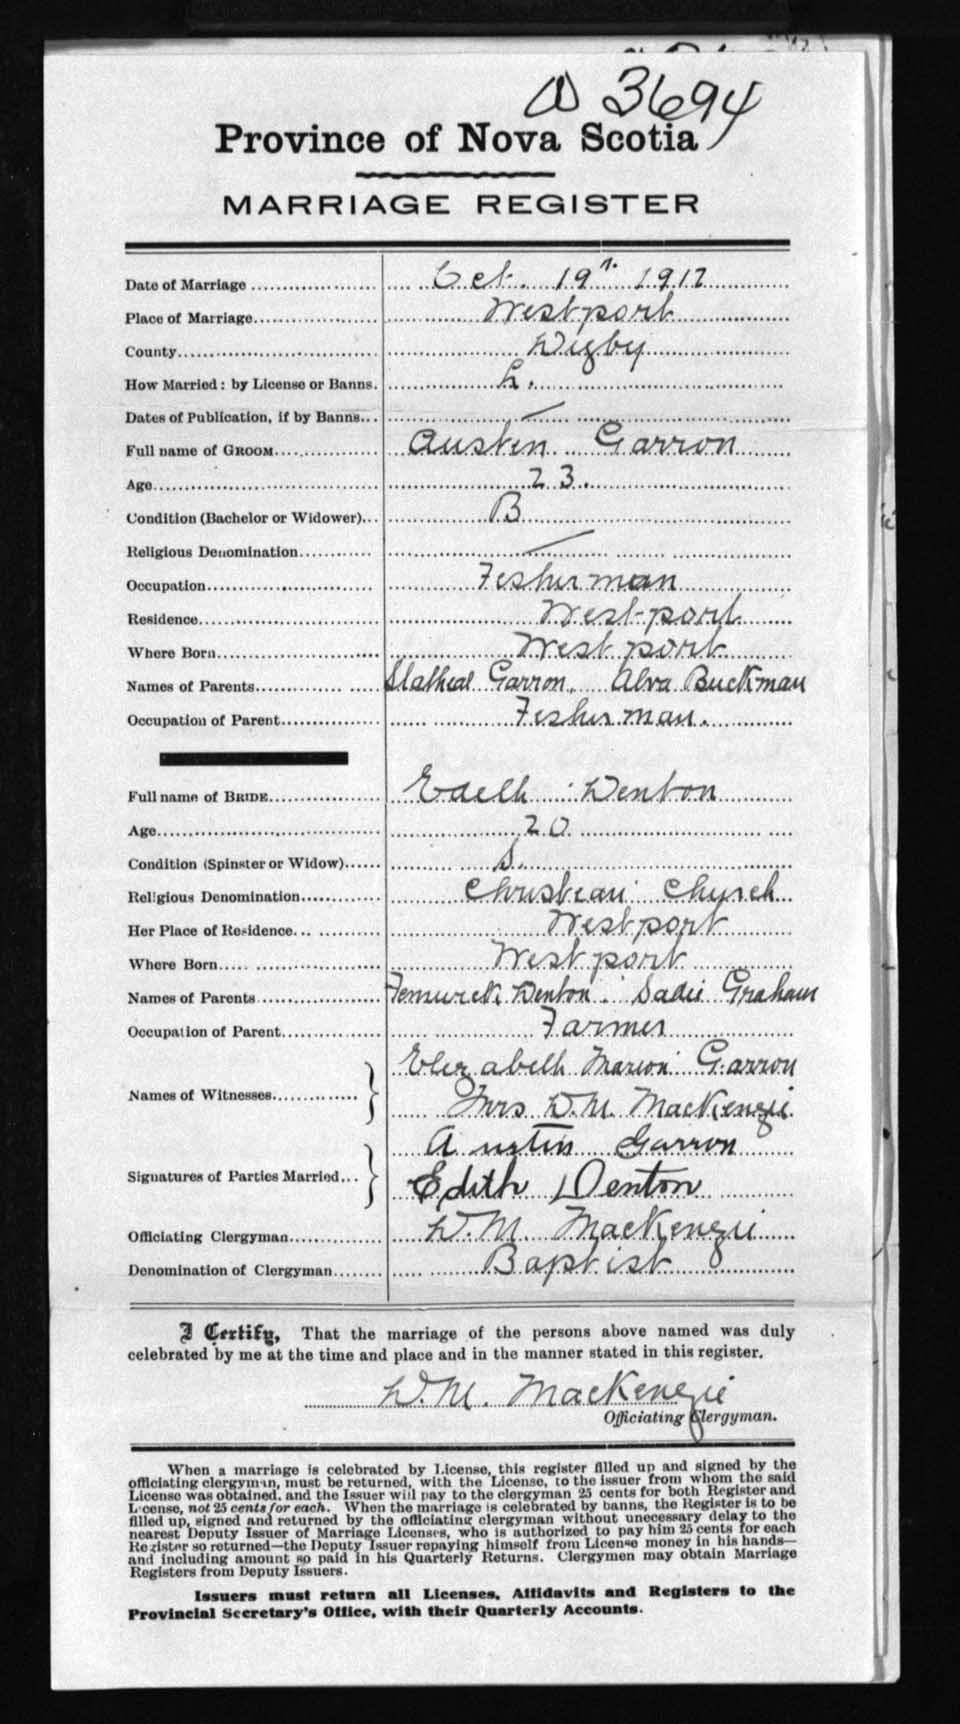 D 3694
Province of Nova Scotia
MARRIAGE REGISTER
Date of Marriage Oct. 19th. 1912
Place of Marriage Westport
County Digby
How Married: by License or Banns. L.
Dates of Publication, if by Banns. —
Full name of GROOM Austen Garron
Age 23.
Condition (Bachelor or Widower) B
Religious Denomination —
Occupation Fisherman
Residence Westport
Where Born Westport
Names of Parents Garron, Alva Buckman
Occupation of Parent Fisherman.
Full name of BRIDE Edith Denton
Age 20
Condition (Spinster or Widow) S.
Religious Denomination Christian Church
Her Place of Residence Westport
Where Born Westport
Names of Parents Fenwick Denton. Sadie Graham
Occupation of Parent Farmer
Names of Witnesses Elizabeth Marion Garron
Mrs D.M. MacKenzie
Signatures of Parties Married Austin Garron
Edith Denton
Officiating Clergyman D.M. MacKenzie
Denomination of Clergyman Baptist
I Certify, That the marriage of the persons above named was duly
celebrated by me at the time and place and in the manner stated in this register.
D.M. MacKenzie
Officiating Clergyman.
When a marriage is celebrated by License, this register filled up and signed by the
officiating clergyman, must be returned, with the License, to the issuer from whom the said
License was obtained, and the Issuer will pay to the clergyman 25 cents for both Register and
License, not 25 cents for each. When the marriage is celebrated by banns, the Register is to be
filled up, signed and returned by the officiating clergyman without unnecessary delay to the
nearest Deputy Issuer of Marriage Licenses, who is authorized to pay him 25 cents for each
Register so returned—the Deputy Issuer repaying himself from License money in his hands—
and including amount so paid in his Quarterly Returns. Clergymen may obtain Marriage
Registers from Deputy Issuers.
Issuers must return all Licenses, Affidavits and Registers to the
Provincial Secretary's Office, with their Quarterly Accounts.